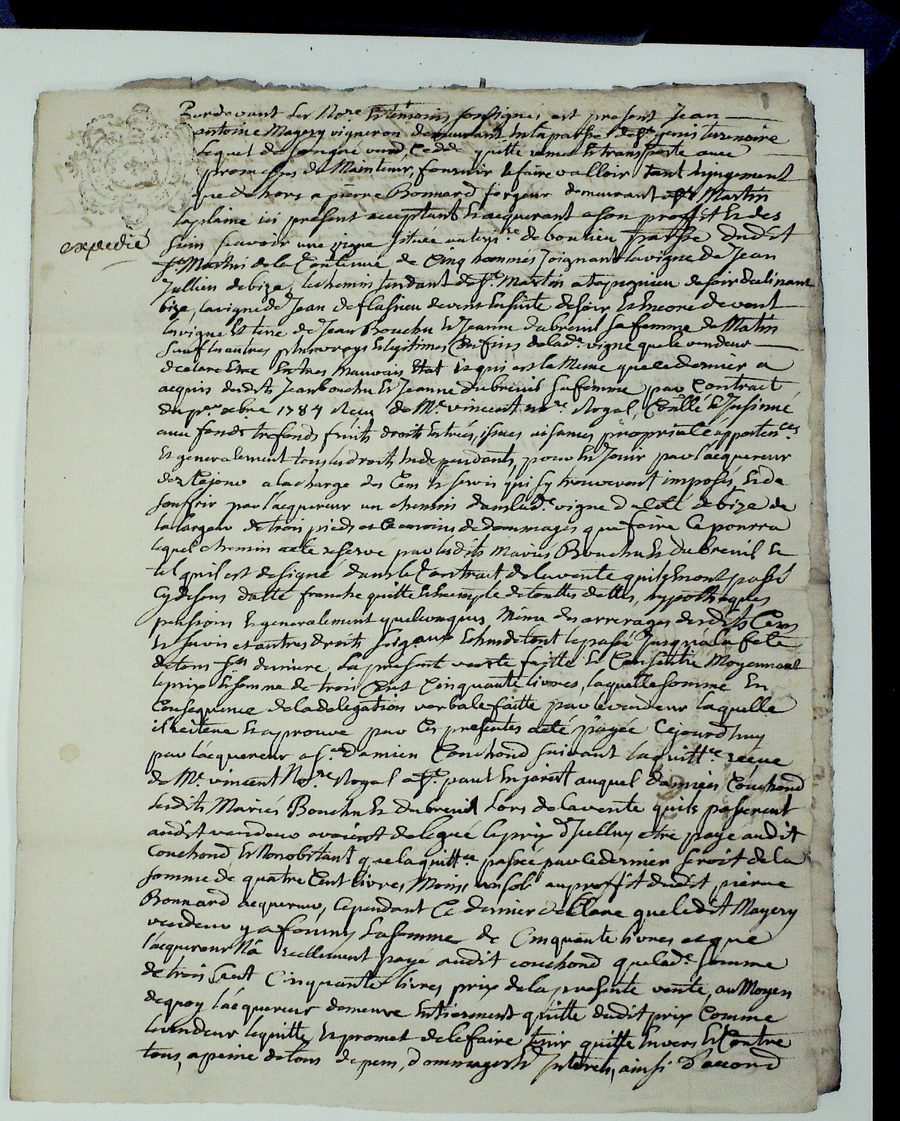 Pardevant Les No.re Et témoins soussignés est present Jean
antoine Mayery vigneron demeurant en la parr.e de S.t genis terrenoire
Lequel de son gré vend Cedde quitte remet Et transporte avec
promesses de Maintenir, fournir Et faire valloir Tant En jugement
que dehors a pierre Bonnard forgeur demeurant a S.t Martin
Laplaine ici present acceptant Et acquerant a son proffit Et des
expedié
siens scavoir une vigne scituée au terr.re de bonlieu parr.e dudit
S.t Martin de la Contenue de Cinq hommes Joignant la vigne de Jean
Jullien de bize, le chemin tendant de S.t Martin a de soir declinant
bize, la vigne de Jean de flassieu devent Ensuite de soir Et Encore de vent
la vigne Et terre de Jean Bouchu Et Jeanne dubreuil sa femme de Matin
sauf les autres plus vrays Et légitimes Confins de lad.e vigne que le vendeur
déclare Etre En très Mauvais Etat Et qui est la Même que ce dernier a
acquis desdits Jean Bouchu Et Jeanne Dubreuil sa femme par Contract
du 1784 Recu de M.e vincent no.re Royal, Conllé Et Insinué
avec fonds trefonds fruits droits Entrées, issues aisances propriété appartences
Et generalement tous les droits En dependants, pour En Jouir par l'acquereur
dez Cejour a la charge des Cens Et servis qui s'y trouveront imposés, Et de
souffrir par l'acquereur un chemin dans lad.e vigne d'a côté de bize de
la largeur de trois pieds et le moins de dommages que faire Ce pourra
lequel chemin a été reservé par lesdits Mariés Bouchu Et dubreuil Et
tel qu'il est designé dans le Contract de la vente qu'ils En ont passé
Cy dessus datté franche quitte Et exempte de touttes dettes, hypotheques
pensions Et generalement quelconques, Même des arrerages desdits Cens
Et servis et autres droits Seig.aux Echus de tout le passé Jusqu'a la fete
de tous S.ts derniere La presente vente faitte Et Consentie Moyennant
le prix Et somme de trois Cent Cinquante livres, laquelle somme En
Consequence de la delegation verbale faitte par le vendeur laquelle
il reitere Et approuve par Ces presentes a été payée Cejourd'huy
par l'acquereur a S.r damien Couchoud suivant la quitt.ce reçue
de M.e vincent No.re Royal a S.t paul En jarest auquel damien Couchoud
lesdits Mariés Bouchu Et dubreuil Lors de la vente qu'ils passerent
audit vendeur avoient delegué le prix d'Icelluy etre payé audit
Couchoud, Et Nonobstant que la quitt.ce passée par ce dernier seroit de la
somme de quatre Cent livres, Moins un sol au proffit dudit pierre
Bonnard acquereur, Cependant Ce dernier déclare que ledit Mayery
vendeur y a fourny La somme de Cinquante livres et que
l'acquereur N'a reellement payé audit Couchoud que lad.e somme
de trois Cent Cinquante livres prix de la presente vente, au Moyen
de quoy l'acquereur demeure Entierement quitte dudit prix Comme
le vendeur le quitte Et promet de le faire tenir quitte Envers Et Contre
tous, a peine de tous depens, dommages Et Interets, ainsi d'accord